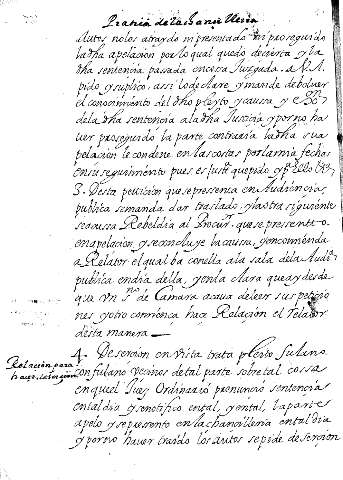 Pratica de la chancilleria
Autos no los a traydo ni presentado ni proseguido
la dha apelacion por lo qual quedo decierta y la
dha sentencia pasada en cosa Juzgada. a V. A.
pido y suplico, assi lo declare, y mande debolver
el conocimiento del dho pleyto y causa, y
de la dha sentencia a la dha Justicia y por no ha
ver proseguido la parte contraria la dha su a
pelacion, le condene en las costas por la mia fechas
en su seguimiento pues es justa que pido y pa ello
3. Desta peticion que se presenta en Audiencia
publica se manda dar traslado, y la otra siguiente
se acusa Rebeldia al Procur. que se presento
en apelacion, y se concluye la causa, y encomienda
a Relator el qual ba con ella a la sala de la Audi.
publica en dia della, y en la clara que ay desde
que un sno de Camara acava de leer sus peticio
nes y otro comiença hace Relacion el relator
desta manera
Relacion para
4. Desercion en vista trata pleyto fulano
con fulano vecinos de tal parte sobre tal cossa
en que el Juez Ordinario pronuncio sentencia
en tal dia y se notifico en tal, y en tal, la parte
apelo y se presento en la chancilleria en tal dia
y por no haver traido los autos se pide desercion